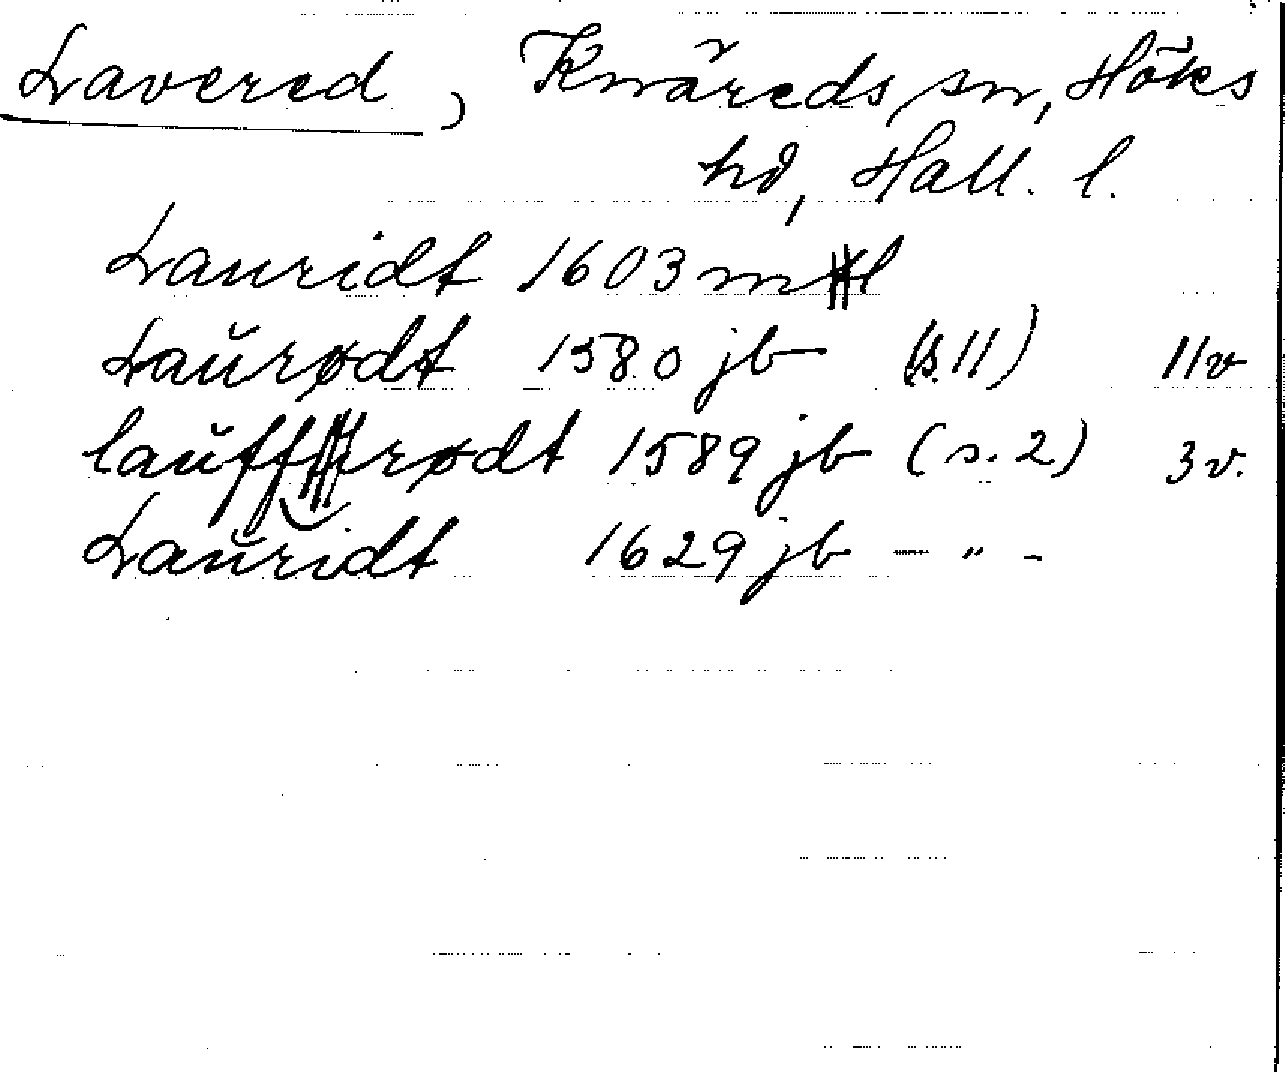 Lavered, Knäreds sn, Höks
hd, Hall. l.
Lauridt 1603 ml
Laŭrødt 1580 jb (s. 11) 11v
laŭffrødt 1589 jb (s. 2) 3v.
Laŭridt 1629 jb - " -